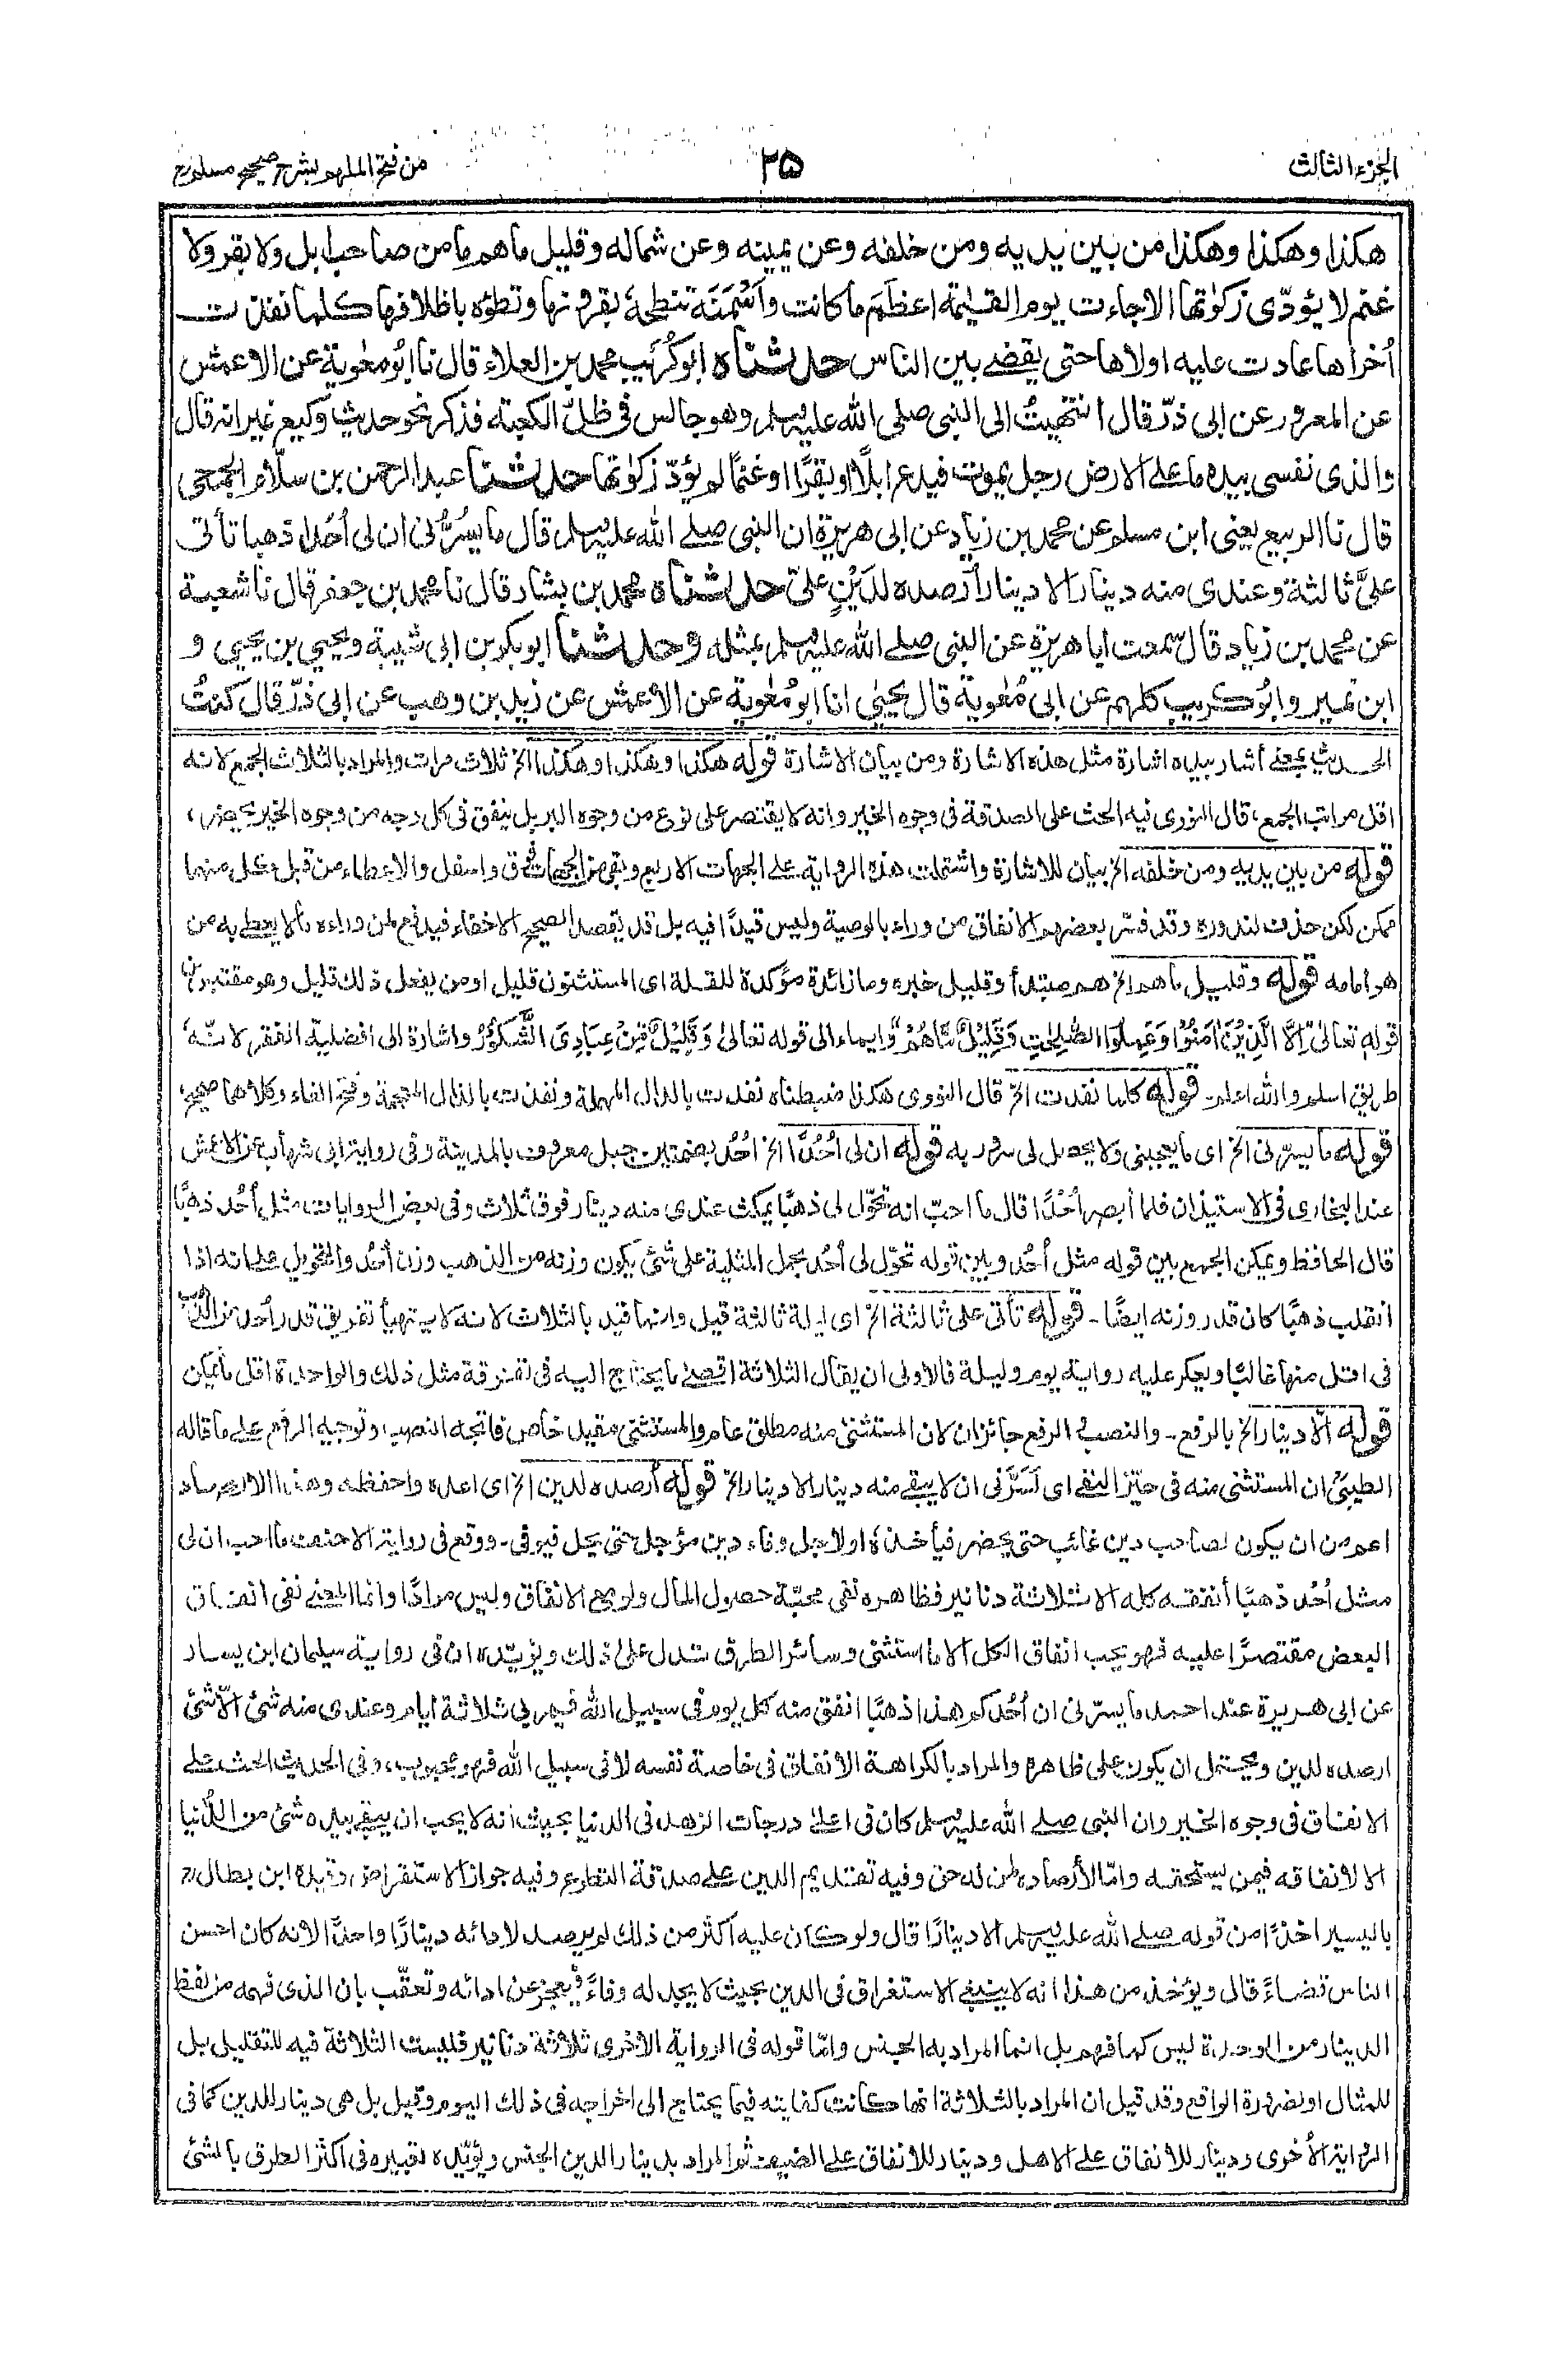 الجزء الثالث
٣٥
من فتح الملهم بشرح صحيح مسلم ج
هكذا وهكذا وهكذا من بين يديه ومن خلفه وعن يمينه وعن شماله وقليل ما هم ما من صاحب ابل ولا بقر ولا
غنم لا يؤدّى زكوٰتها الا جاءت يوم القيٰمة اعظَمَ ما كانت وأَسْمَنَهٗ تنطحهٗ بقرونها وتطؤه باظلافها كلما نفذت
أُخراها عادت عليه اولاها حتى يقضے بين الناس حدثناه ابوكُرَيب محمد بن العلاء قال نا ابومعٰوية عن الاعمش
عن المعرور عن ابى ذرّ قال انتهيتُ الى النبى صلى الله عليہ وسلم وهو جالس فى ظلّ الكعبة فذكر نحو حديث وكيع غير انه قال
والذى نفسى بيده ما علے الارض رجل يموت فيدع ابلًا او بقرًا او غنمًا لم يؤدّ زكوٰتها حدثنا عبد الرحمن بن سلّام الجمحى
قال نا الربيع يعنى ابن مسلم عن محمد بن زياد عن ابى هريرة ان النبى صلے الله عليہ وسلم قال ما يسُرُّنى ان لى أُحُدا ذهبا تأتى
علىَّ ثالثة وعندى منه دينار الا دينارا أرصده لدَيْنٍ علىّ حدثناه محمد بن بشار قال نا محمد بن جعفر قال نا شعبة
عن محمد بن زياد قال سمعت ابا هريرة عن النبى صلے الله عليہ وسلم بمثله وحدثنا ابوبكر بن ابى شيبة ويحيى بن يحيى و
ابن نمير وابُوكريب كلهم عن ابى مُعٰوية قال يحيىٰ انا ابومُعٰوية عن الأعمش عن زيد بن وهب عن ابى ذرّ قال كنتُ
الحديث يعنے أشار بيده اشارة مثل هذه الاشارة ومن بيان الاشارة قوله هكذا وهكذا وهكذا الخ ثلاث مرات والمراد بالثلاث الجمع لانه
اقل مراتب الجمع، قال النووى فيه الحث على الصدقة فى وجوه الخير وانه لا يقتصر على نوع من وجوه البر بل ينفق فى كل وجه من وجوه الخير يحضر،
قوله من بين يديه ومن خلفه الخ بيان للاشارة واشتملت هذه الرواية علے الجهات الاربع وبقى من الجهات فوق واسفل والاعطاء من قبل كل منهما
ممكن لكن حذف لندوره وقد فسّر بعضهم الانفاق من وراء بالوصية وليس قيدًا فيه بل قد يقصد الصحيح الاخفاء فيدفع لمن وراءه مالا يعطى به من
هو امامه قوله وقليل ما هم الخ هم مبتدأ وقليل خبره وما زائدة مؤكدة للقلة اى المستثنون قليل او من يفعل ذلك قليل وهو مقتبس من
قوله تعالىٰ اِلَّا الَّذِيْنَ اٰمَنُوْا وَعَمِلُوا الصّٰلِحٰتِ وَقَلِيْلٌ مَّا هُمْ وايماء الى قوله تعالىٰ وَقَلِيْلٌ مِّنْ عِبَادِىَ الشَّكُوْرُ واشارة الى افضلية الفقر لانّهٗ
طريق اسلم والله اعلم۔ قوله كلما نفدت الخ قال النووى هكذا ضبطناه نفدت بالدال المهملة ونفذت بالذال المعجمة وفتح الفاء وكلاهما صحيح،
قوله ما يسرّنى الخ اى ما يعجبنى ولا يحصل لى سرور به قوله ان لى أُحُدًا الخ أُحُد بضمتين جبل معروف بالمدينة وفى رواية ابى شهاب عن الاعمش
عند البخارى فى الاستيذان فلما أبصر أُحُدًا قال ما احبّ انه تحوّل لى ذهبًا يمكث عندى منه دينار فوق ثلاث وفى بعض الروايات مثل أُحُد ذهبًا
قال الحافظ ويمكن الجمع بين قوله مثل أُحُد وبين قوله تحوّل لى أُحُد بحمل المثلية على شئ يكون وزنه من الذهب وزن أُحُد والتحويل علے انه اذا
انقلب ذهبًا كان قدر وزنه ايضًا۔ قوله تأتى على ثالثة الخ اى ليلة ثالثة قيل وانما قيد بالثلاث لانه لا يتهيأ تفريق قدر أُحد من الذهب
فى اقل منها غالبًا ويعكر عليه رواية يوم وليلة فالأولى ان يقال الثلاثة اقصى ما يحتاج اليه فى تفرقة مثل ذلك والواحدة اقل ما يمكن
قوله الّا دينار الخ بالرفع۔ والنصب والرفع جائزان لان المستثنىٰ منه مطلق عام والمستثنى مقيد خاص فاتجه النصب وتوجيه الرفع علے ما قاله
الطيبى ان المستثنى منه فى حيّز النفے اى لَسَرَّنى ان لا يبقے منه دينار الا دينار الخ قوله أرصده لدين الخ اى اعده واحفظه وهذا الارصاد
اعم من ان يكون لصاحب دين غائب حتى يحضر فيأخذهٗ اولاجل وفاء دين مؤجل حتى يحل فيوفى۔ ووقع فى رواية الاحنف ما احب ان لى
مثل أُحُد ذهبًا أنفقه كله الا ثلاثة دنانير فظاهره نفى محبّة حصول المال ولو مع الانفاق وليس مرادًا وانما المعنے نفى انفاق
البعض مقتصرًا عليه فهو يحب انفاق الكل الا ما استثنى وسائر الطرق تدل علىٰ ذلك ويؤيّده ان فى رواية سليمان ابن يسار
عن ابى هريرة عند احمد ما يسرّنى ان أُحُدكم هذا ذهبًا انفق منه كل يوم فى سبيل الله فيمر بى ثلاثة ايام وعندى منه شئ الّا شئ
ارصده لدين ويحتمل ان يكون على ظاهره والمراد بالكراهة الانفاق فى خاصة نفسه لا فى سبيل الله فهو محبوب، وفى الحديث الحث علے
الانفاق فى وجوه الخير وان النبى صلے الله عليہ وسلم كان فى اعلىٰ درجات الزهد فى الدنيا بحيث انه لا يحب ان يبقے بيده شئ من الدُّنيا
الا لانفاقه فيمن يستحقه وامّا لأرصاده لمن له حق وفيه تقديم الدين علے صدقة التطوع وفيه جواز الاستقراض وقيده ابن بطال رح
باليسير اخذًا من قوله صلے الله عليہ وسلم الا دينارًا قال ولو كان عليه اكثر من ذلك لم يرصد لادائه دينارًا واحدًا لانه كان احسن
الناس قضاءً قال ويؤخذ من هذا انه لا ينبغے الاستغراق فى الدين بحيث لا يجد له وفاءً فيعجز عن ادائه وتعقّب بان الذى فهمه من لفظ
الدينار من الوحدة ليس كما فهم بل انما المراد به الجنس وامّا قوله فى الرواية الأخرى ثلاثة دنانير فليست الثلاثة فيه للتقليل بل
للمثال او لضرورة الواقع وقد قيل ان المراد بالثلاثة انها كانت كفايته فيما يحتاج الى اخراجه فى ذلك اليوم وقيل بل هى دينار للدين كما فى
الرواية الأخرى ودينار للانفاق علے الاهل ودينار للأنفاق علے الضيف ثم المراد بدينار الدين الجنس ويؤيّده تعبيره فى اكثر الطرق بالشئ